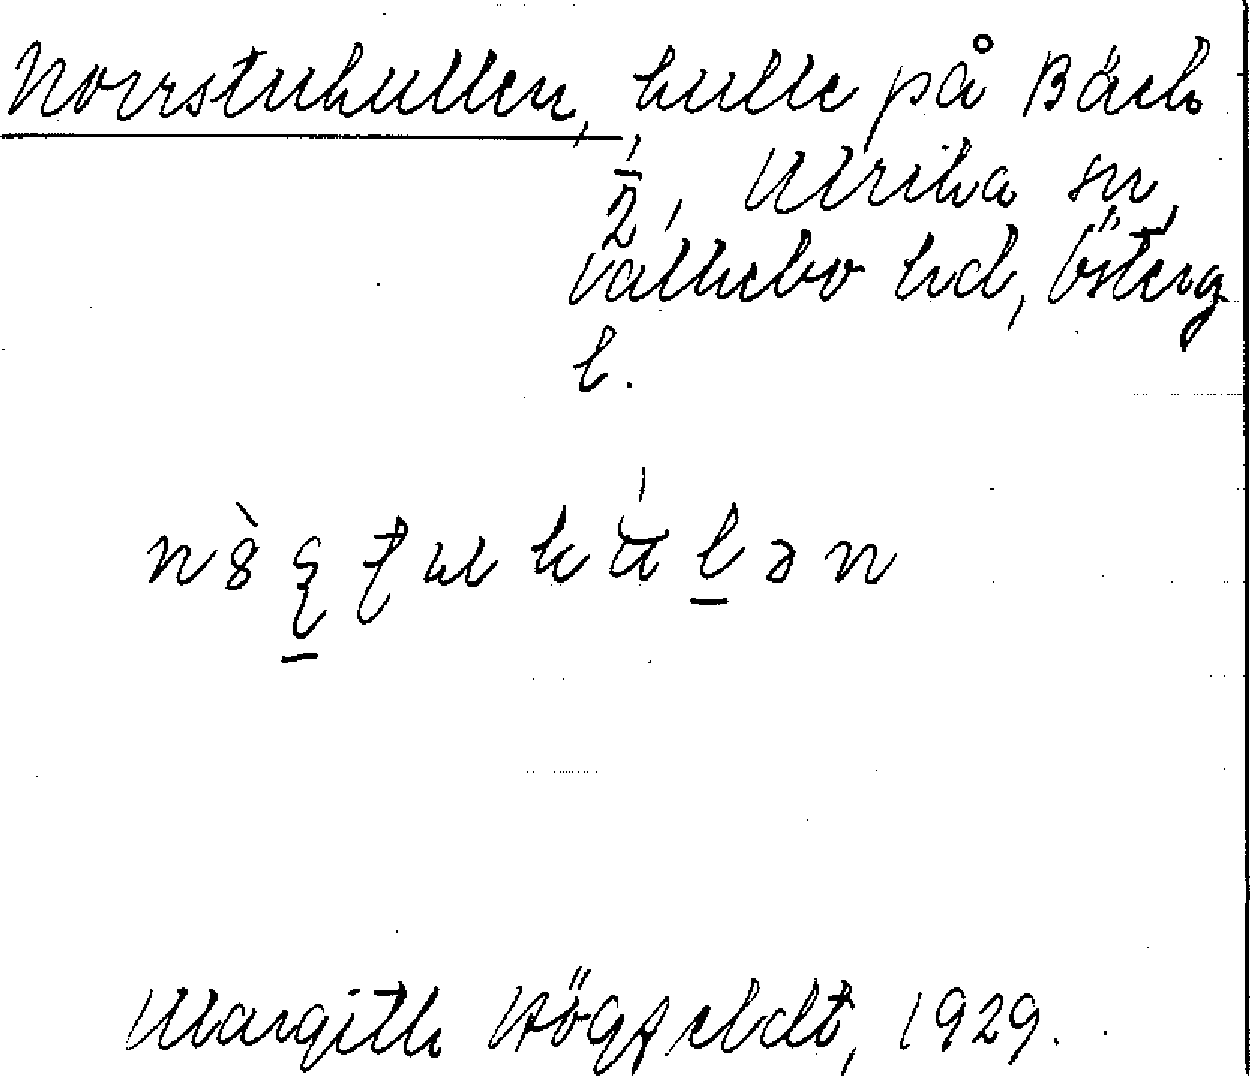 Norrstukullen, kulle på Bäck
1/2, Ulrika sn,
Valkebo hd, Österg
l.
Margith Högfeldt, 1929.